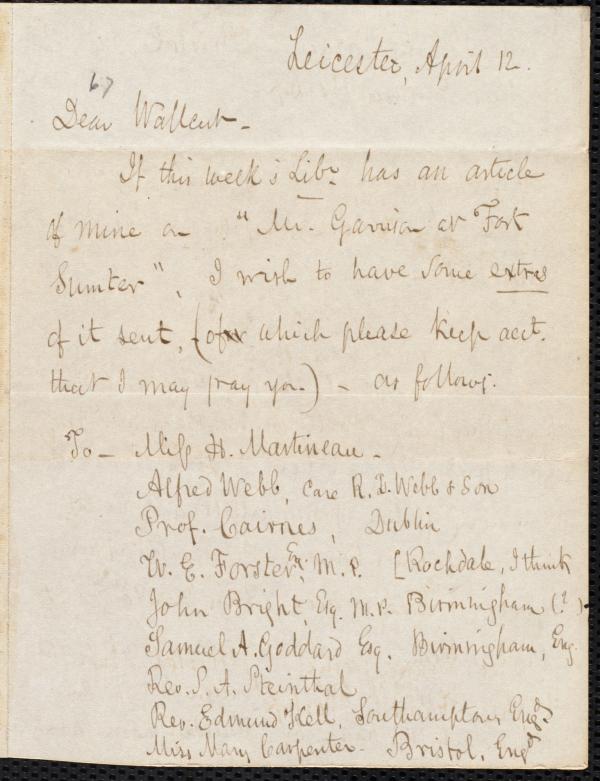 Leicester, April 12.
67
Dear Wallcut -
If this week's Libr. has an article
of mine on "Mr. Garrison at Fort
Sumter", I wish to have some extras
of it sent, (of which please keep acct.
that I may pay you.) - as follows.
To - Miss H. Martineau -
Alfred Webb, care R. D. Webb & Son
Prof. Cairnes, Dublin
W. E. Forster, Esq. M. P. [Rochdale, I think
John Bright, Esq. M. P. Birmingham (?)
Samuel A. Goddard Esq. Birmingham, Eng.
Rev. S. A. Steinthal
Rev. Edmund Kell, Southampton, Engd
Miss Mary Carpenter - Bristol, Engd